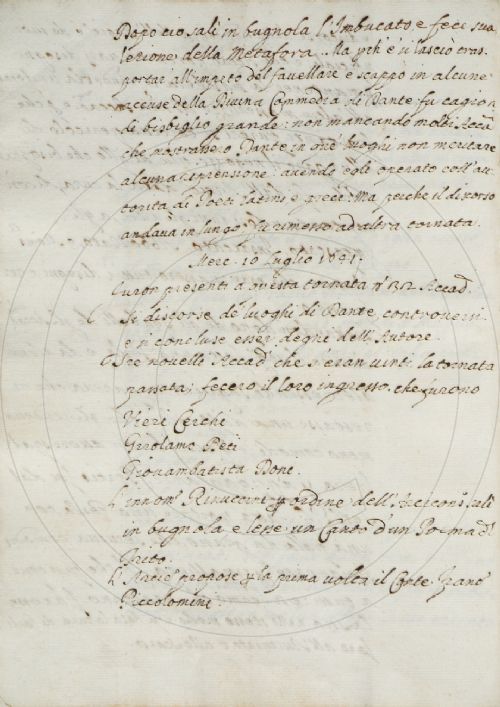 Dopo ciò salì in bugnola l'Imbucato e fece sua
lezione della Metafora. Ma pch è si lasciò tras
portar all'impeto del favellare e scappò in alcune
accuse della Divina Commedia di Dante: fu cagion
di bisbiglio grande: non mancando molti Accad
che mostrassero Dante in que' luoghi non meritare
alcuna reprensione: avendo egli operato coll'au
torità di Poeti latini e greci: Ma perche il discorso
andava in lungo fu rimesso ad altra tornata.
Merc. 10 luglio 1641.
Furon presenti a questa tornata n° Accad.
Si discorse de' luoghi di Dante controversi
e si concluse esser degni dell'Autore.
Tre novelli Accad. che s'eran vinti la tornata
passata; fecero il loro ingresso. che furono
Vieri Cerchi
Girolamo
Giovambatista Doni.
L'innom. Rinuccini p ordine dell'Arcicons. salì
in bugnola e lesse un Canto d'un Poema d

L'Arcic. propose p la prima volta il Conte
Piccolomini.